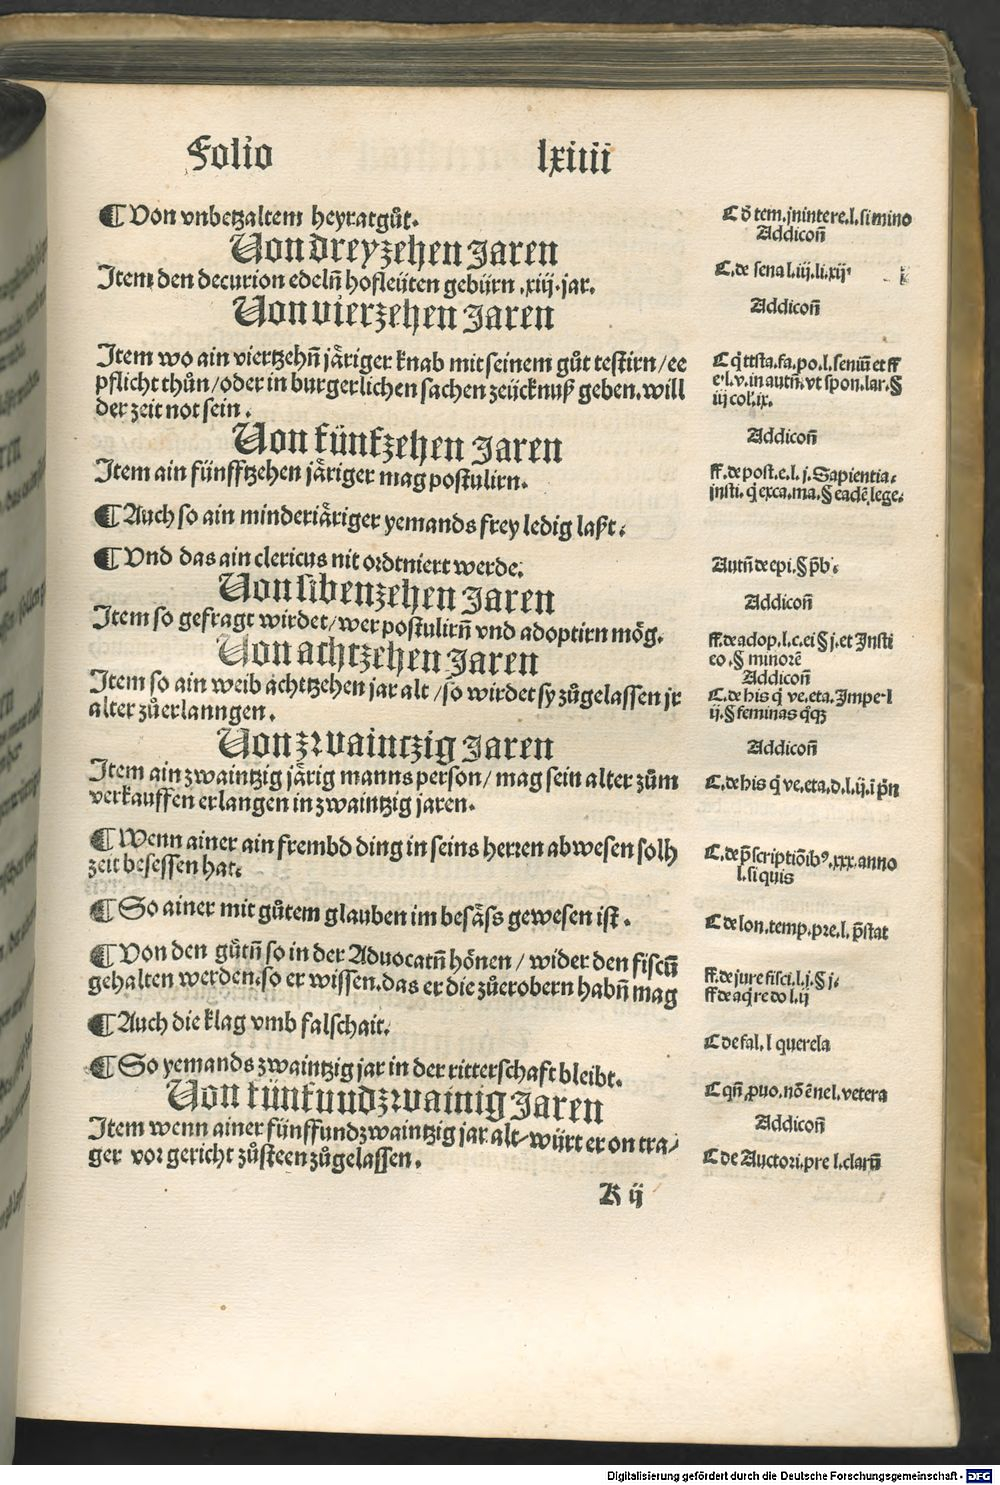 Folio lxiiii
¶ Von vnbetzaltem heyratgůt.
C ð tem. jnintere. l. si mino
Von dreyzehen Jaren
Addicoñ
Item den decurion edelñ hofleüten gebürn .xiij. jar.
C. de sena l. iij. li. xij
Von vierzehen Jaren
Addicoñ
Item wo ain viertzehñ järiger knab mit seinem gůt testirn / ee
pflicht thůn / oder in burgerlichen sachen zeücknuß geben. will
der zeit not sein.
C q̇ ttsta. fa. po. l. seniū et ff
e. l. v. in autñ. vt spon. lar. §
iij col. ix.
Von fünfzehen Jaren
Addicoñ
Item ain fünfftzehen järiger mag postulirn.
ff. de post. e. l. j. Sapientia.
insti. q̇ exca. ma. § eadē lege.
¶ Auch so ain minderjäriger yemands frey ledig laßt.
¶ Vnd das ain clericus nit ordtniert werde.
Autñ de epi. § p̄b.
Von sibenzehen Jaren
Addicoñ
Item so gefragt wirdet / wer postulirñ vnd adoptirn mög.
ff. de adop. l. c. ei § j. et Insti
eo. § minorē
Von achtzehen Jaren
Addicoñ
Item so ain weib achttzehen jar alt / so wirdet sy zůgelassen jr
alter zůerlanngen.
C. de his q̇ ve. eta. Impe. l
ij. § feminas q̇q̣
Von zwaintzig Jaren
Addicoñ
Item ain zwaintzig järig manns person / mag sein alter zům
verkauffen erlangen in zwaintzig jaren.
C. de his q̇ ve. eta. d. l. ij. ī p̄n
¶ Wenn ainer ain frembd ding in seins herren abwesen solh
zeit besessen hat.
C. de p̄scriptiōibꝰ. xxx. anno
l. si quis
¶ So ainer mit gůtem glauben im besäss gewesen ist.
C de lon. temp. pre. l. p̄stat
¶ Von den gůtñ so in der Aduocatñ hönen / wider den fiscū
gehalten werden. so er wissen. das er die zůerobern habñ mag
ff. de jure fisci. l. j. § j.
ff de aq̇re do l. ij
¶ Auch die klag vmb falschait.
C de fal. l querela
¶ So yemands zwaintzig jar in der ritterschaft bleibt.
C qñ ꝓuo. nō ē nel. vetera
Von fünfundzwainig Jaren
Addicoñ
Item wenn ainer fünffundzwaintzig jar alt / würt er on tra/
ger vor gericht zůsteen zůgelassen.
C de Auctori. pre l. clarū
K ij
Digitalisierung gefördert durch die Deutsche Forschungsgemeinschaft - DFG